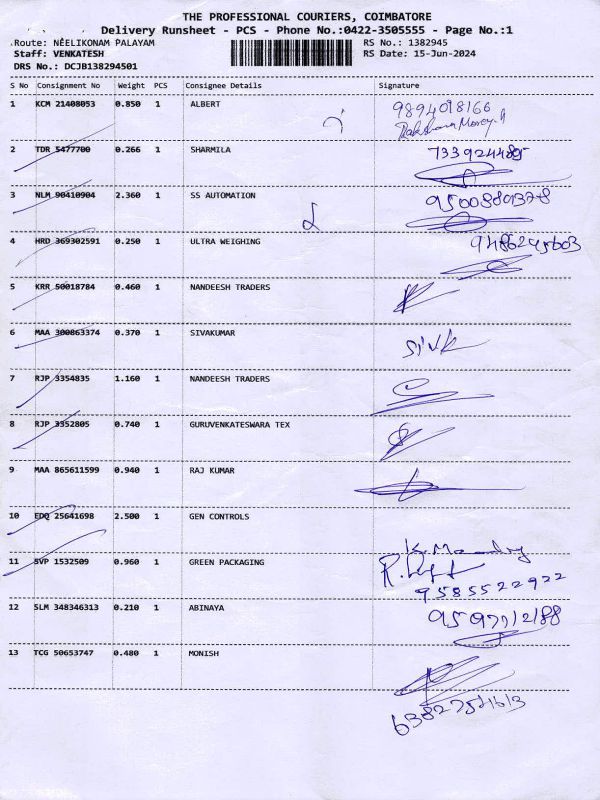 THE PROFESSIONAL COURIERS, COIMBATORE
Delivery Runsheet - PCS - Phone No.:0422-3505555 - Page No.:1
Route: NEELIKONAM PALAYAM RS No.: 1382945
Staff: VENKATESH RS Date: 15-Jun-2024
DRS No.: DCJB138294501
S No Consignment No Weight PCS Consignee Details Signature
1 KCM 21408053 0.850 1 ALBERT 9894098166
2 TDR 5477700 0.266 1 SHARMILA 733924485
3 NLM 90410904 2.360 1 SS AUTOMATION
4 HRD 369302591 0.250 1 ULTRA WEIGHING 9486245603
5 KRR 50018784 0.460 1 NANDEESH TRADERS
6 MAA 300863374 0.370 1 SIVAKUMAR
7 RJP 3354835 1.160 1 NANDEESH TRADERS
8 RJP 3352805 0.740 1 GURUVENKATESWARA TEX
9 MAA 865611599 0.940 1 RAJ KUMAR
10 EDQ 25641698 2.500 1 GEN CONTROLS
11 SVP 1532509 0.960 1 GREEN PACKAGING
9585522922
12 SLM 348346313 0.210 1 ABINAYA
13 TCG 50653747 0.480 1 MONISH